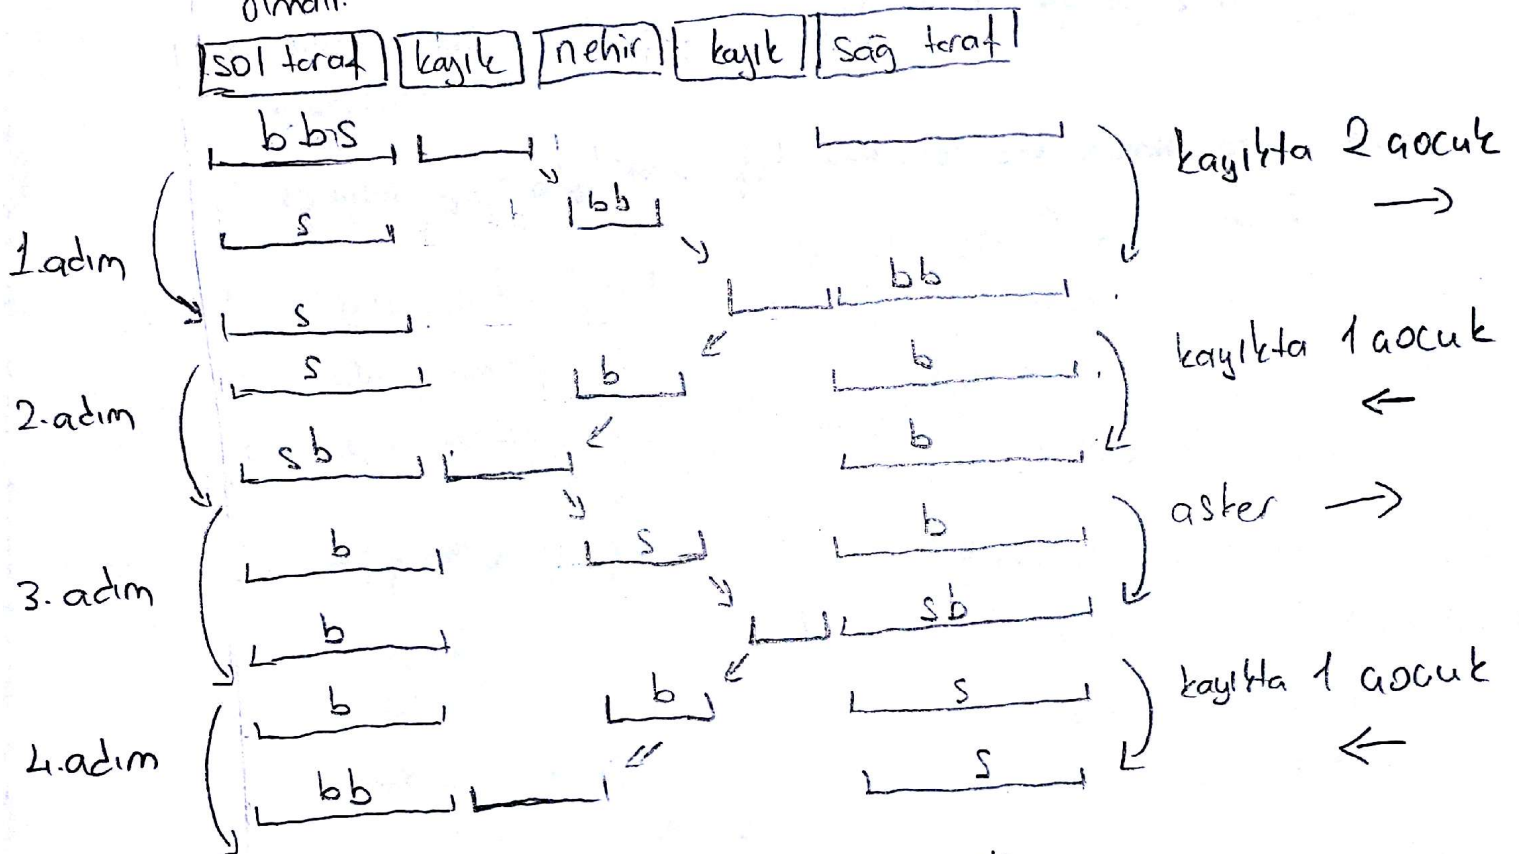 olmalı.
sol taraf kayık nehir kayık sağ taraf
b b s
kayıkta 2 çocuk
bb
s
1.adım
bb
s
kayıkta 1 çocuk
s b b
2.adım
b
s b
asker
b s b
3.adım
s b
b
kayıkta 1 çocuk
b b s
4.adım
s
bb